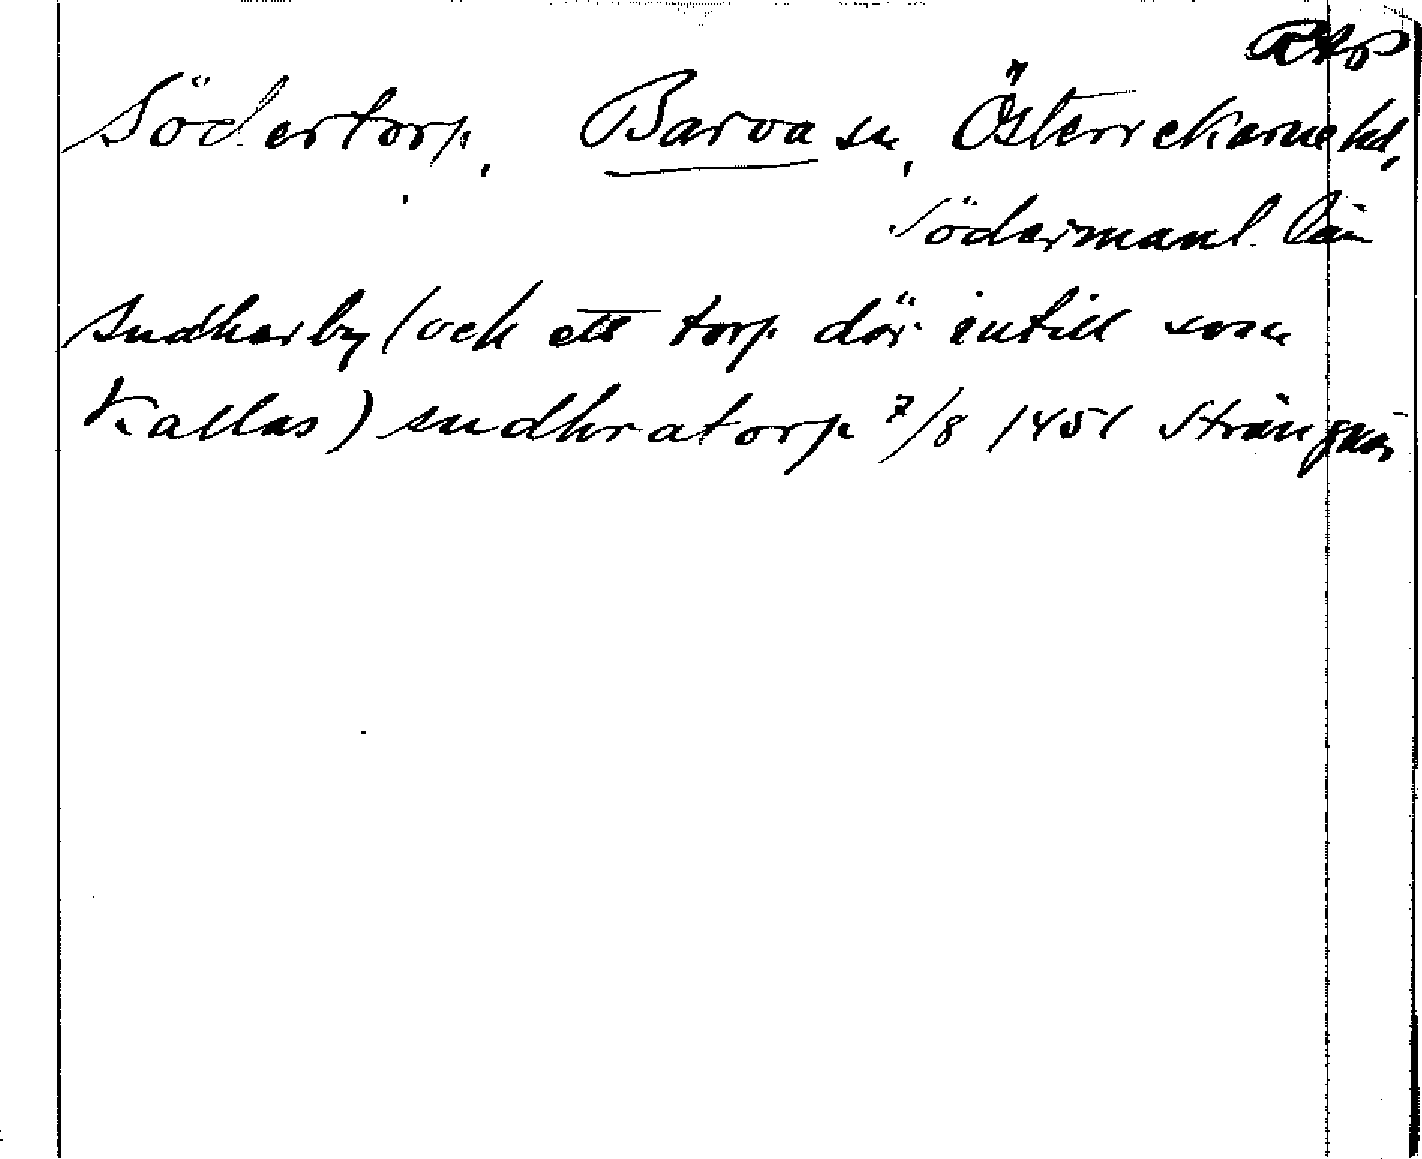 RAP
Södertorp, Barva sn, Österrekarne hd,
Södermanl. län
Sudherby (och ett torp där intill som
kallas) sudhratorp 7/8 1451 Strängnäs